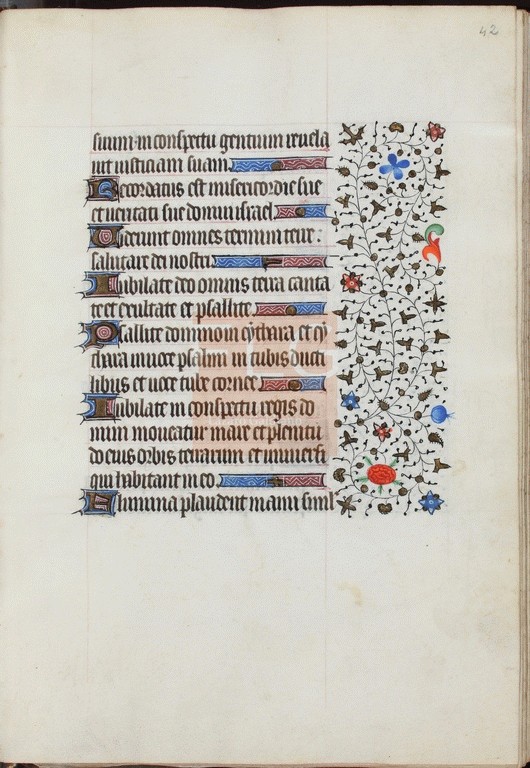 42
suum in conspectu gentium revela
vit iusticiam suam
Recordatus est misericordie sue
et veritati sue domui israel
Viderunt omnes termini terre :
salutare dei nostri
Iubilate deo omnis terra canta
te et exultate et psallite
Psallite domino in cythara et cy
thara in voce psalmi in tubis ducti
libus et voce tube cornee
Iubilate in conspectu regis do
mini moveatur mare et plenitu
do eius orbis terrarum et universi
qui habitant in eo
Flumina plaudent manu simul